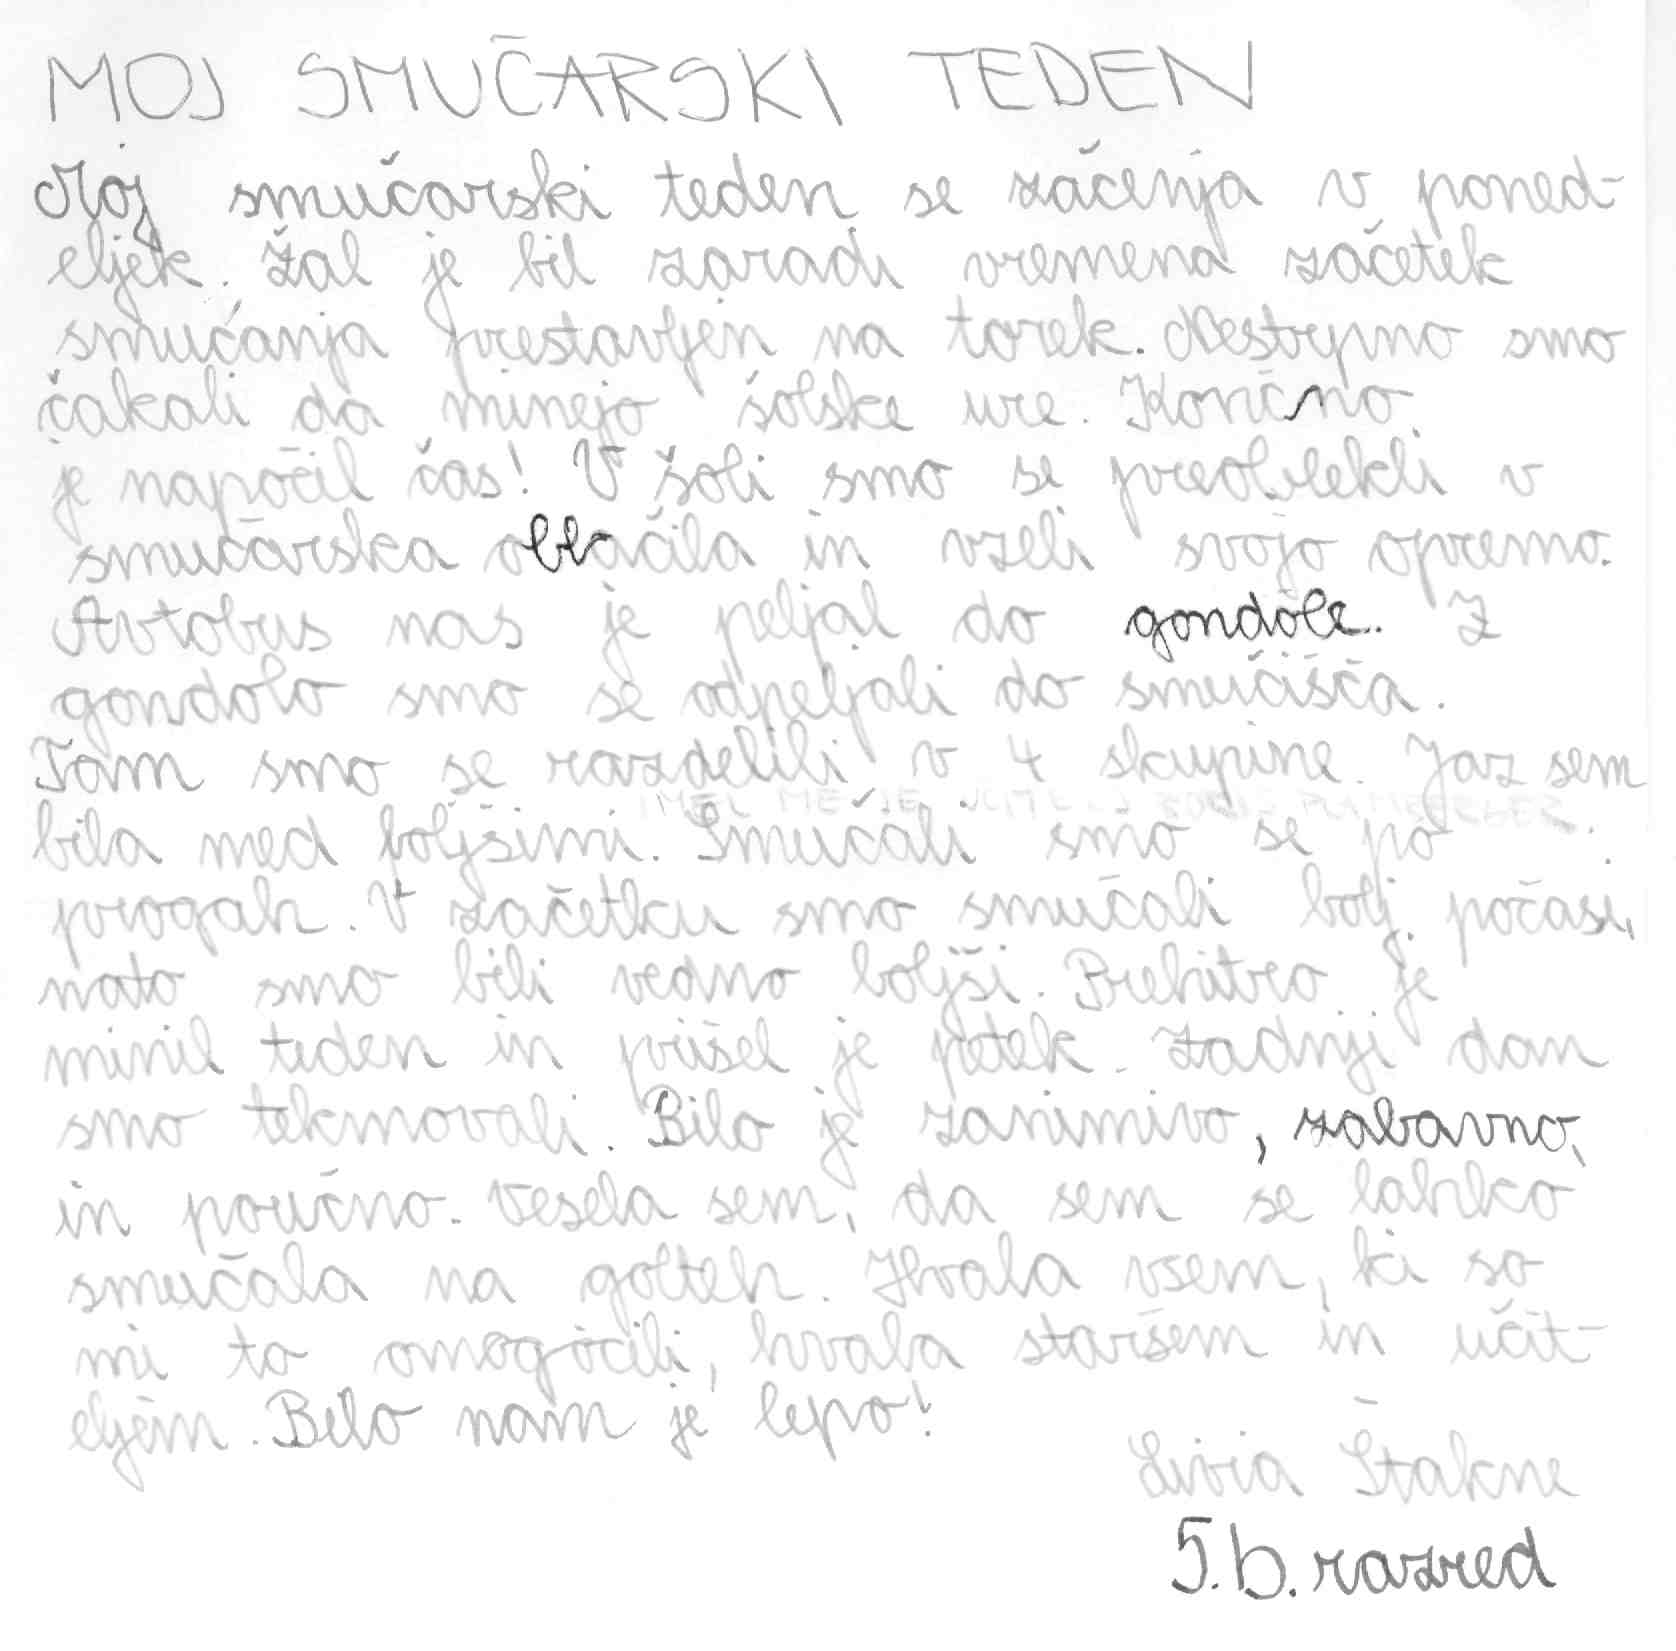 MOJ SMUČARSKI TEDEN
Moj smučarski teden se začenja v poned-
eljek. Žal je bil zaradi vremena začetek
smučanja prestavljen na torek. Nestrpno smo
čakali da minejo šolske ure. Končno
je napočil čas! V šoli smo se preoblekli v
smučarska oblačila in vzeli svojo opremo.
Avtobus nas je peljal do gondole. Z
gondolo smo se odpeljali do smučišča.
Tam smo se razdelili v 4 skupine. Jaz sem
bila med boljšimi. Smučali smo se po
progah. V začetku smo smučali bolj počasi,
nato smo bili vedno boljši. Prehitro je
minil teden in prišel je petek. Zadnji dan
smo tekmovali. Bilo je zanimivo, zabavno,
in poučno. Vesela sem, da sem se lahko
smučala na golteh. Hvala vsem, ki so
mi to omogočili, hvala staršem in učit-
eljem. Bilo nam je lepo!
Livia Štakne
5.b. razred